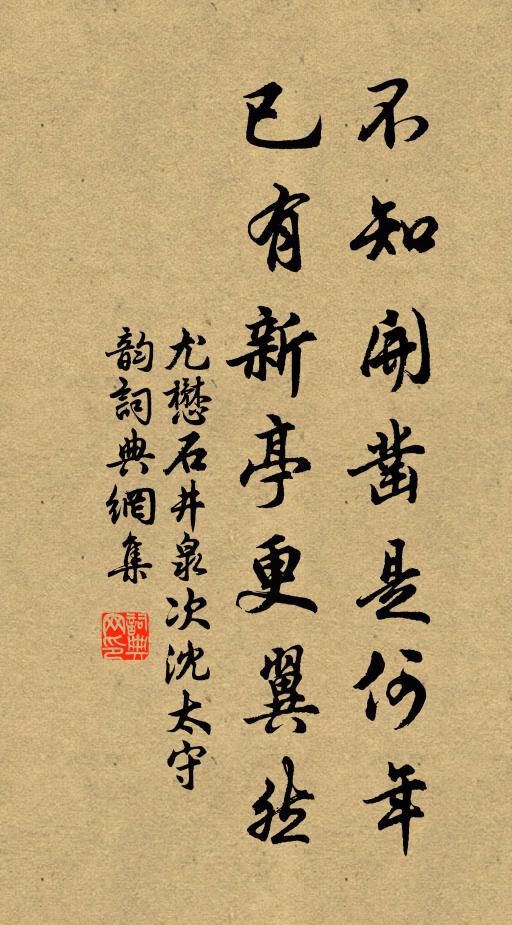 不知開鑿是何年
已有新亭更翼然
尤懋石井泉次沈太守
韵詞典網集
詞典网印